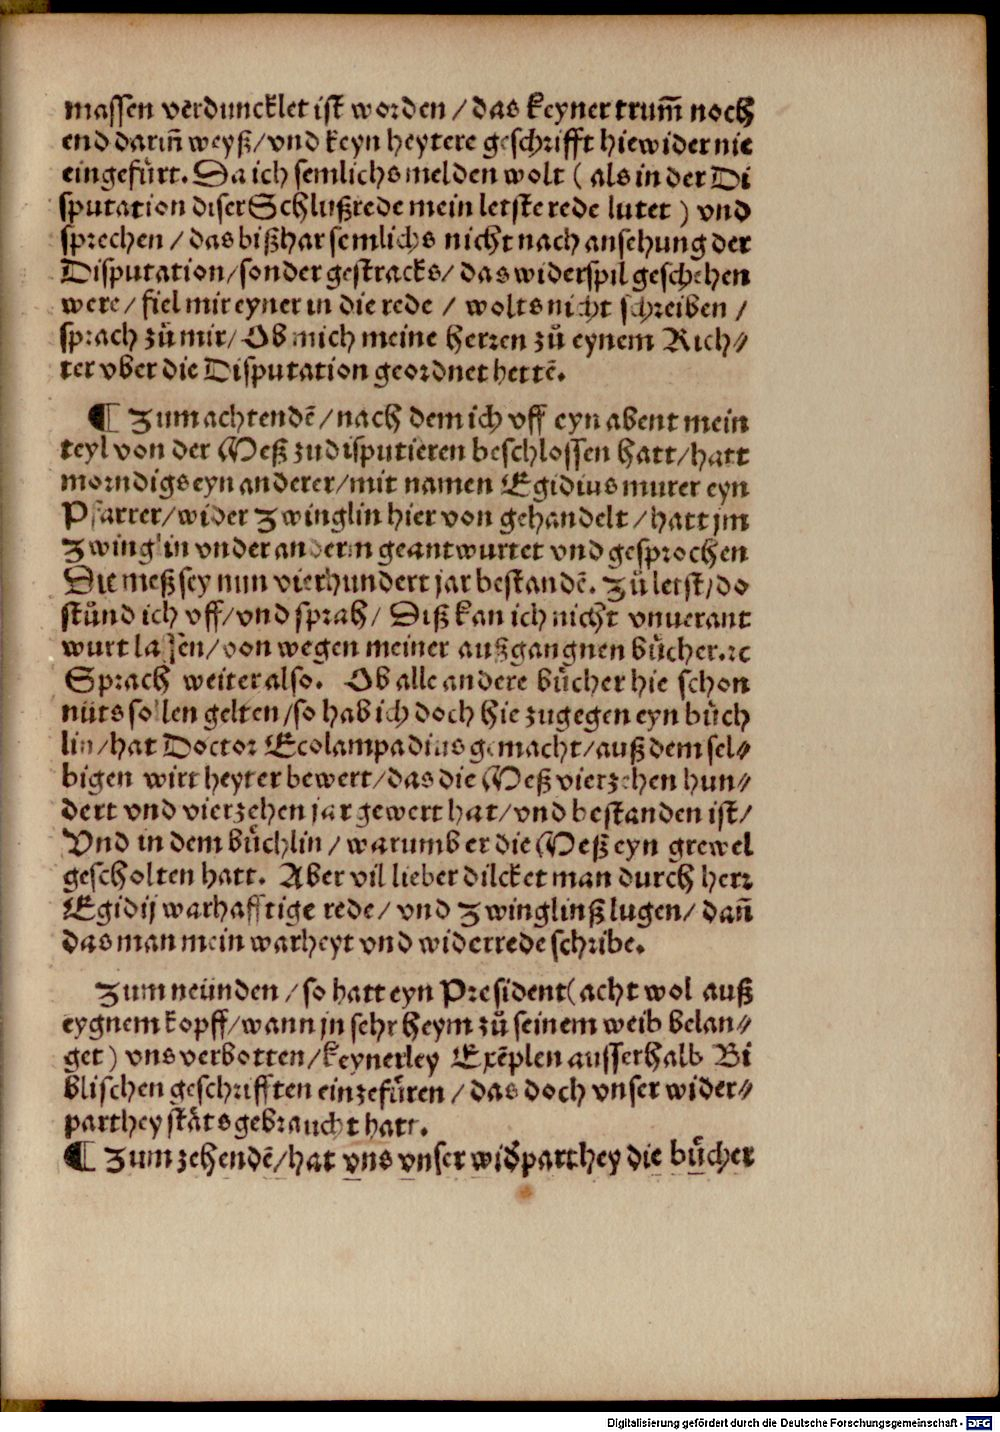 massen verduncklet ist worden / das keyner trum̄ noch
end darin̄ weyß / vnd keyn heytere geschrifft hiewider nie
eingefürt. Da ich semlichs melden wolt ( als in der Di
sputation diser Schlußrede mein letste rede lutet ) vnd
sprechen / das bißhar semlichs nicht nach ansehung der
Disputation / sonder gestracks / das widerspil geschehen
were / fiel mir eyner in die rede / wolts nicht schreiben /
sprach zů mir / Ob mich meine herren zů eynem Rich⸗
ter vber die Disputation geordnet hettē.
¶ Zum achtendē / nach dem ich vff eyn abent mein
teyl von der Meß zudisputieren beschlossen hatt / hatt
morndigs eyn anderer / mit namen Egidius murer eyn
Pfarrer / wider Zwinglin hier von gehandelt / hatt jm
Zwinglin vnder anderm geantwurtet vnd gesprochen
Die meß sey nun vierhundert jar bestandē. Zů letst / do
stůnd ich vff / vnd sprah / Diß kan ich nicht vnuerant
wurt lassen / von wegen meiner außgangnen bůcher.ꝛc
Sprach weiter also. Ob alle andere bůcher hie schon
nüts sollen gelten / so hab ich doch hie zugegen eyn bůch
lin / hat Doctor Ecolampadius gemacht / auß dem sel⸗
bigen wirt heyter bewert / das die Meß vierzehen hun⸗
dert vnd vierzehen jar gewert hat / vnd bestanden ist /
Vnd in dem bůchlin / warumb er die Meß eyn grewel
gescholten hatt. Aber vil lieber dilcket man durch herr
Egidij warhafftige rede / vnd Zwinglinß lugen / dan̄
das man mein warheyt vnd widerrede schribe.
Zum neünden / so hatt eyn President ( acht wol auß
eygnem kopff / wann jn sehr heym zů seinem weib belan⸗
get ) vns verbotten / keynerley Exēplen ausserhalb Bi
blischen geschrifften einzefůren / das doch vnser wider⸗
parthey stäts gebraucht hatt.
¶ Zum zehendē / hat vns vnser widparthey die bůcher
Digitalisierung gefördert durch die Deutsche Forschungsgemeinschaft - DFG